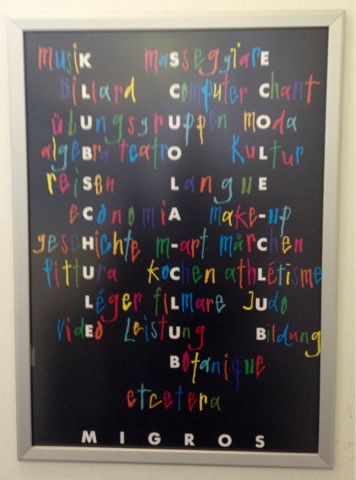 musiK masseggiarE
BiLlard Computer Chant
übUngsgrUppen mOda
algeBra teatrO KuLtur
reiSen Langue
eConomia make-up
gescHichte m-art märChen
pittUra koChen athLétisme
Léger fiLmare JUdo
vidEo LeistUng Bildung
Botanique
etcetera
MIGROS